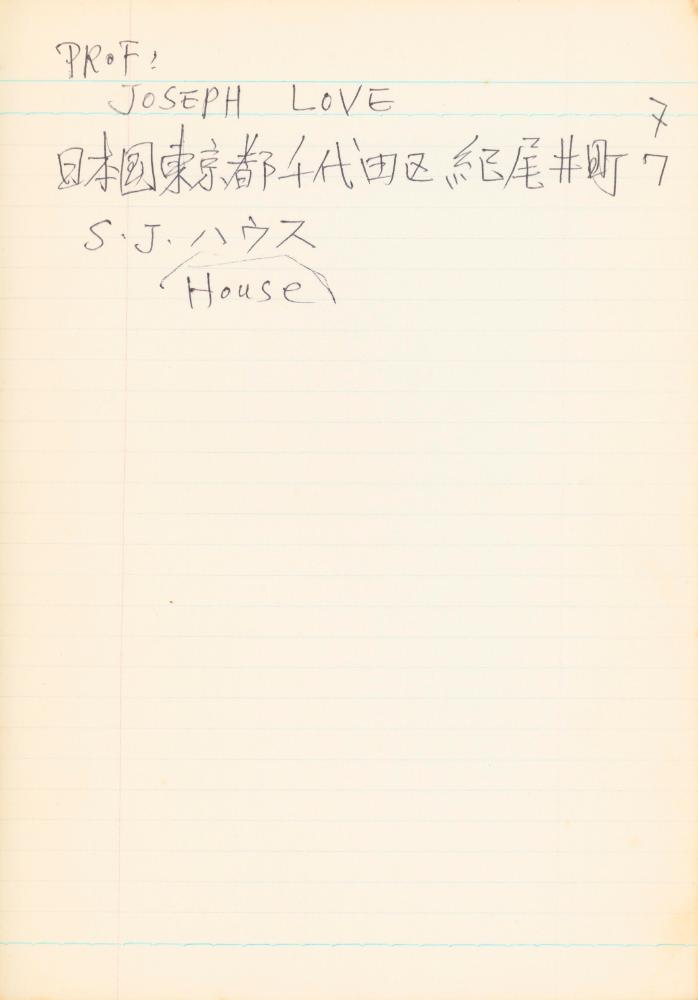 PROF:
JOSEPH LOVE
7
日本国東京都千代田区紀尾井町7
S.J.ハウス
House